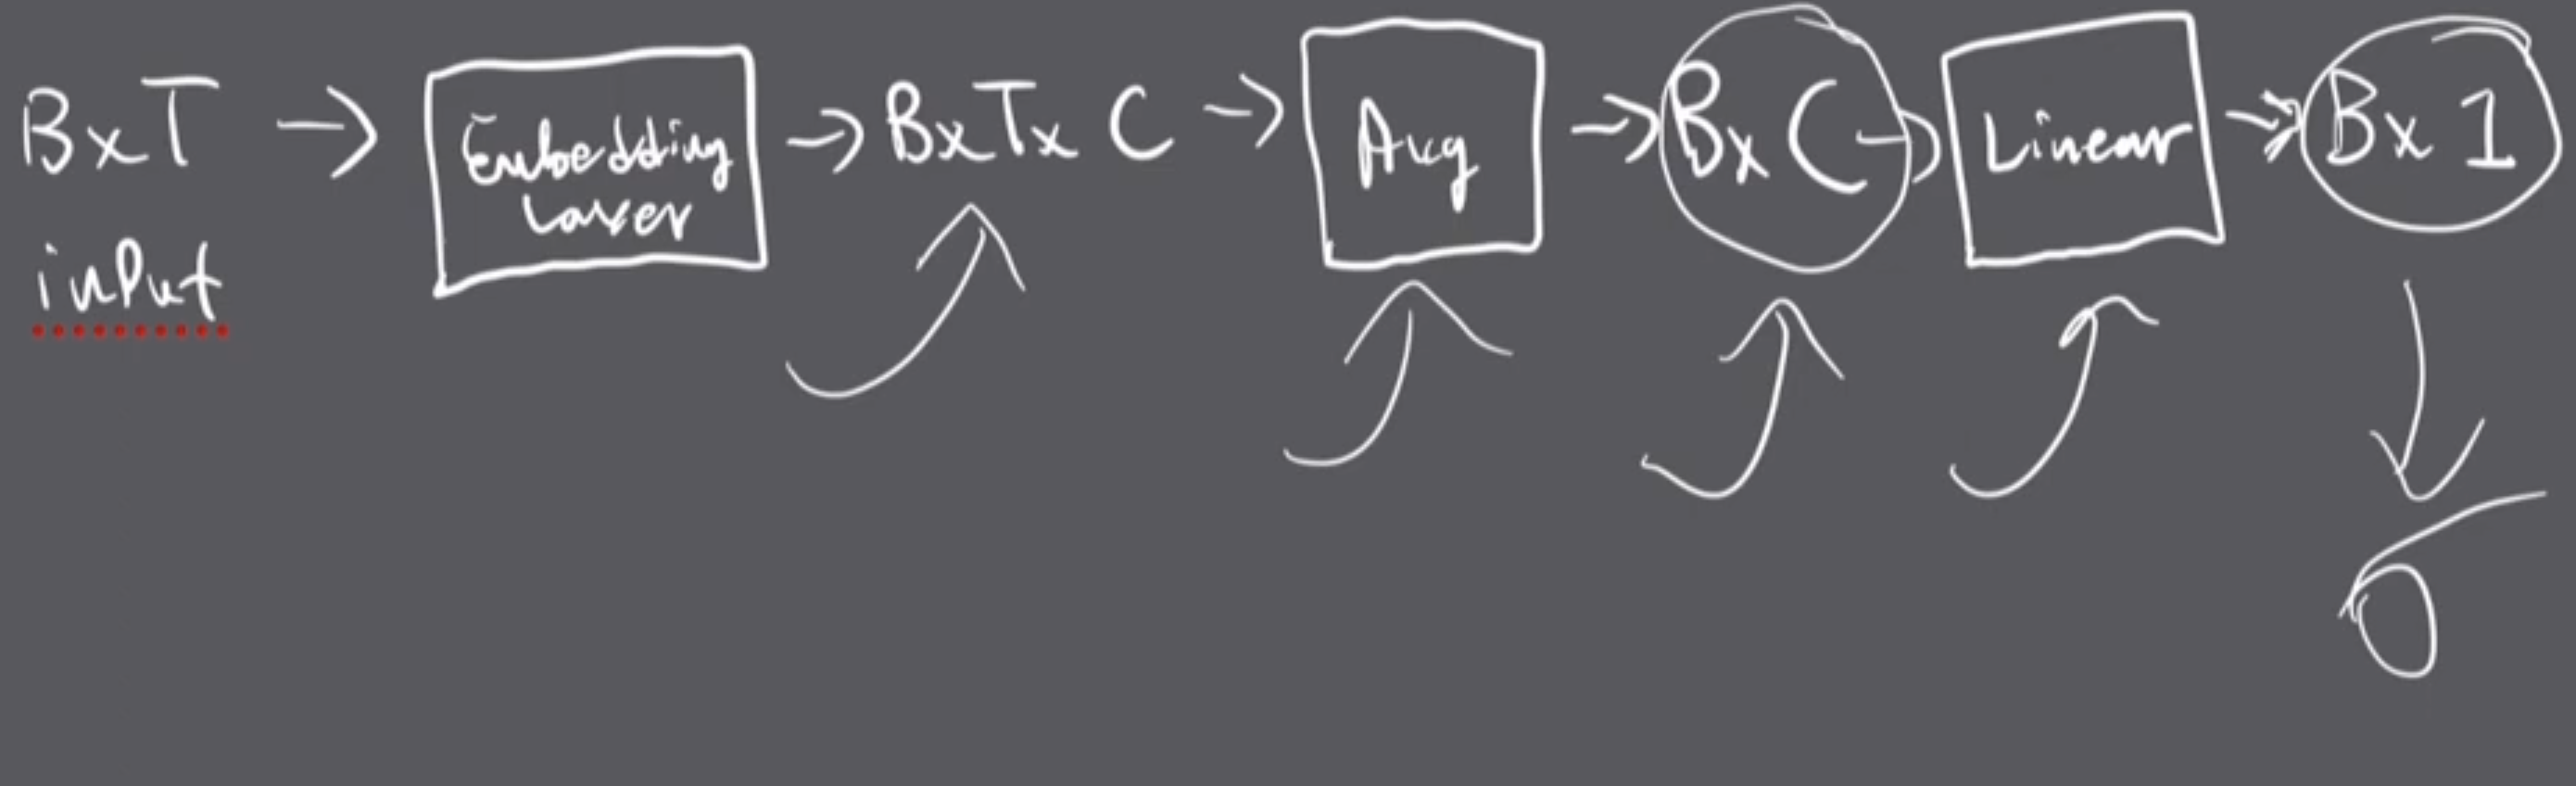 BxT → Embedding Layer → BxTx C → Avg → Bx C → Linear → Bx 1
input
σ